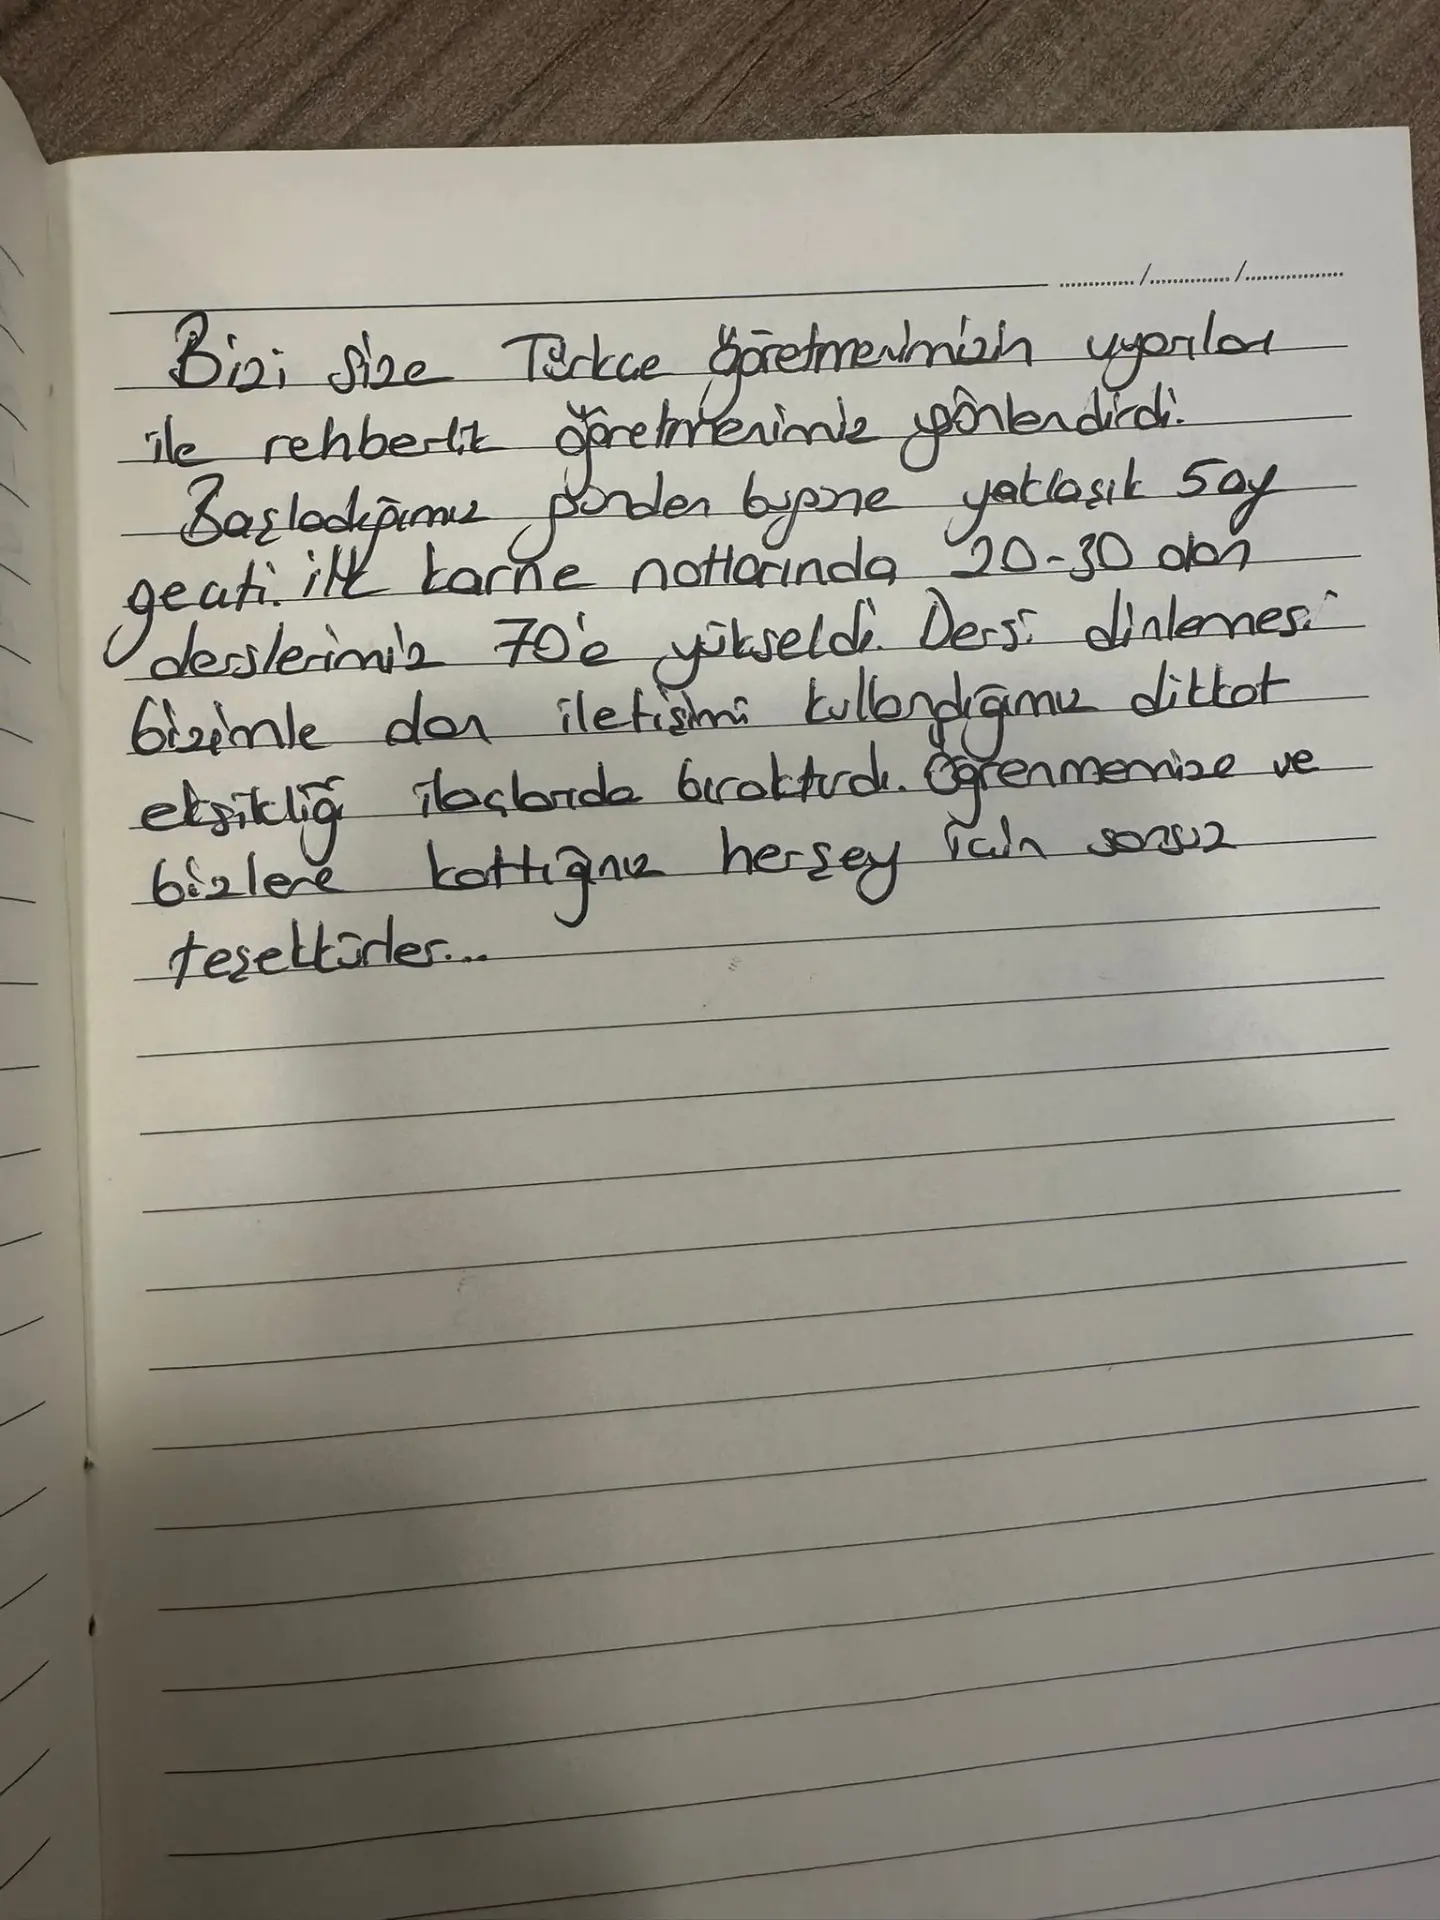 Bizi size Türkçe öğretmenimizin uyarıları
ile rehberlik öğretmenimiz yönlendirdi.
Başladığımız günden bugüne yaklaşık 5 ay
geçti. ilk karne notlarında 20-30 olan
derslerimiz 70'e yükseldi. Dersi dinlemesi
bizimle olan iletişimi kullandığımız dikkat
eksikliği ilaçlarıda bıraktırdı. Öğrenmemize ve
bizlere kattığınız herşey için sonsuz
teşekkürler...